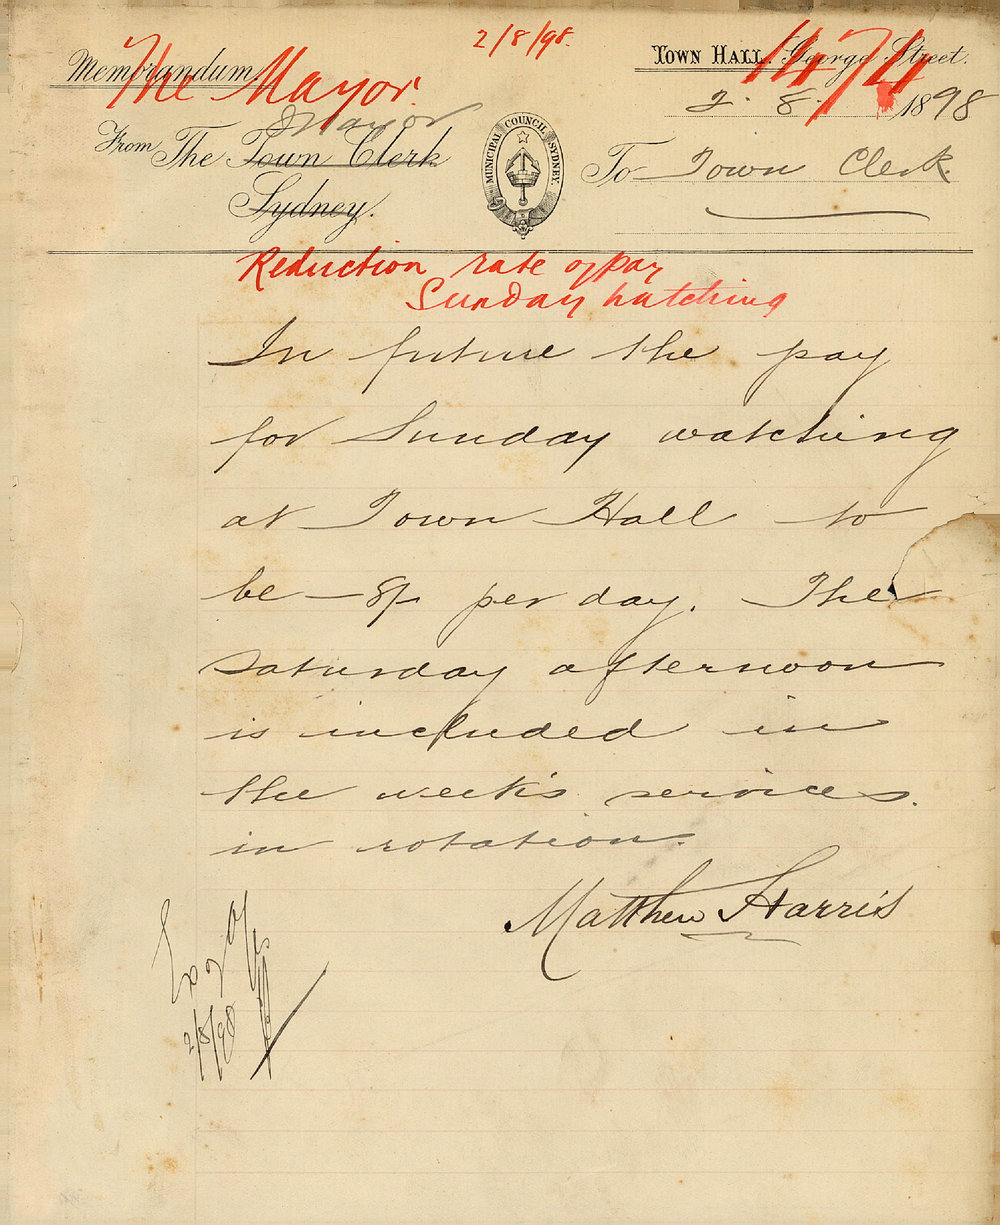 2/8/98.
The Mayor.
1474
Memorandum.
TOWN HALL. George Street.
2. 8. 1898
Mayor
From The Town Clerk
Sydney.
MUNICIPAL COUNCIL SYDNEY.
To Town Clerk.
Reduction rate of pay
Sunday watching
In future the pay
for Sunday watching
at Town Hall to
be - 8/- per day. The
Saturday afternoon
is included in
the week's services.
in rotation.
Matthew Harris
2/8/98